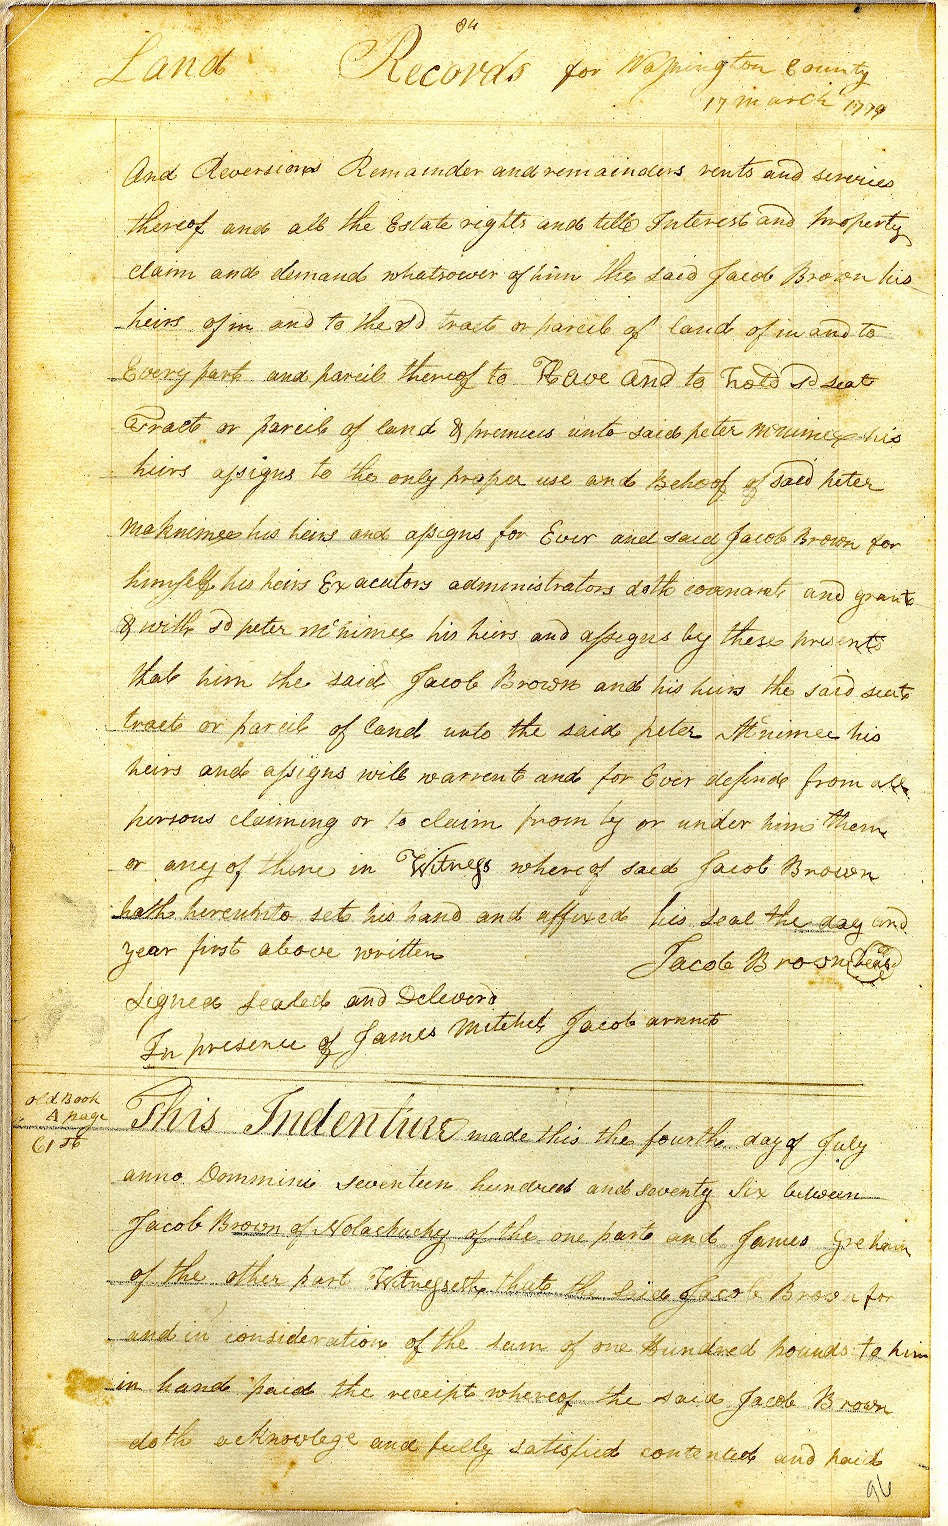 84
Land Records for Washington County
17 march 1779
And Reversions Remainder and remainders rents and servies
thereof and all the Estate rights and title Interest and property
claim and demand whatsoever of him the said Jacob Brown his
heirs of in and to the sd tract or parcil of land of in and to
Every part and parcil thereof to Have and to hold sd seat
Tract or parcil of land & premeces unto said peter McNimee his
heirs assigns to the only proper use and Behoof of said peter
Maknemee his heirs and assigns for Ever and said Jacob Brown for
himself his heirs Exacutors administrators doth covenant and grant
& with sd peter McNimee his heirs and assigns by these presents
that him the said Jacob Brown and his heirs the said seat
tract or parcil of land unto the said peter McNimee his
heirs and assigns will warrent and for Ever defend from all
persons claiming or to claim from by or under him them
or any of there in Witness whereof said Jacob Brown
hath hereunto set his hand and affixed his seal the day and
year first above written
Jacob Brown Seal
Signed Sealed and Deleverd
In presence of James Mitchel Jacob arnnt
Old Book
A page
61 st
This Indenture made this the fourth day of July
anno Dommini seventeen hundred and seventy Six between
Jacob Brown of Nolachucky of the one part and James Greham
of the other part Witnesseth that the Said Jacob Brown for
and in consideration of the sum of one Hundred pounds to him
in hand paid the receipt whereof the said Jacob Brown
doth acknowlege and fully satisfied contented and paid
96